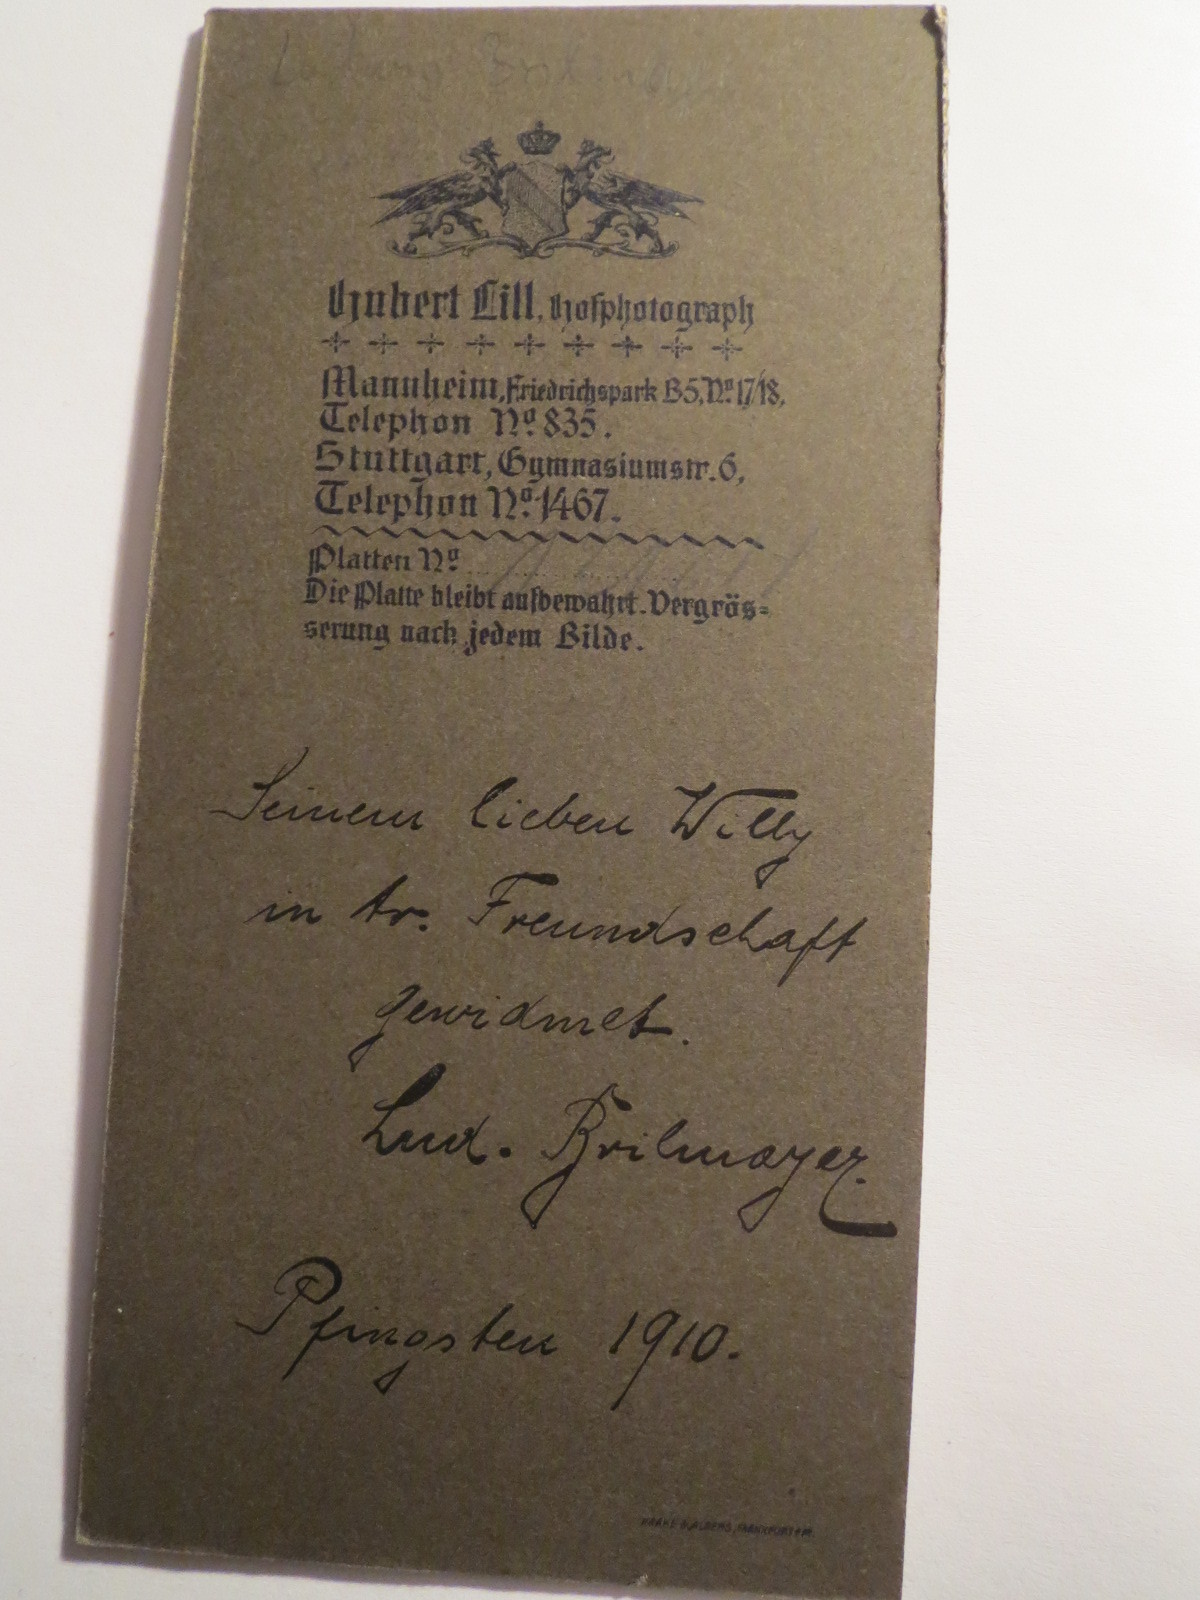 Ludwig
Hubert Lill, Hofphotograph
Mannheim, Friedrichspark B5, No. 17/18,
Telephon No. 835.
Stuttgart, Gymnasiumstr. 6,
Telephon No. 1467.
Platten No
Die Platte bleibt aufbewahrt. Vergrös=
serung nach jedem Bilde.
Seinem lieben Willy
in tr. Freundschaft
gewidmet.
Lud. Brilmayer.
Pfingsten 1910.